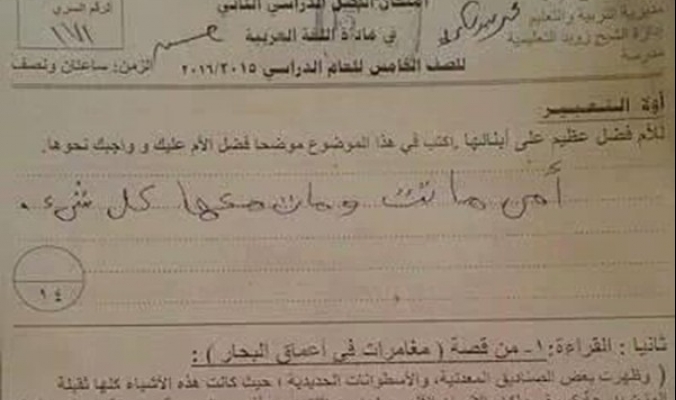 امتحان الفصل الدراسي الثاني
في مادة اللغة العربية
للصف الخامس للعام الدراسي ٢٠١٦/٢٠١٥
الزمن: ساعتان ونصف
مديرية التربية والتعليم
إدارة الشيخ زويد التعليمية
مدرسة
الرقم السري
أولا التعبير
للأم فضل عظيم على أبنائها .اكتب في هذا الموضوع موضحا فضل الأم عليك و واجبك نحوها.
أمي ماتت ومات معها كل شيء .
١٤
ثانيا : القراءة :١- من قصة ( مغامرات في أعماق البحار ) :
( وظهرت بعض الصناديق المعدنية، والأسطوانات الحديدية ؛ حيث كانت هذه الأشياء كلها ثقيلة